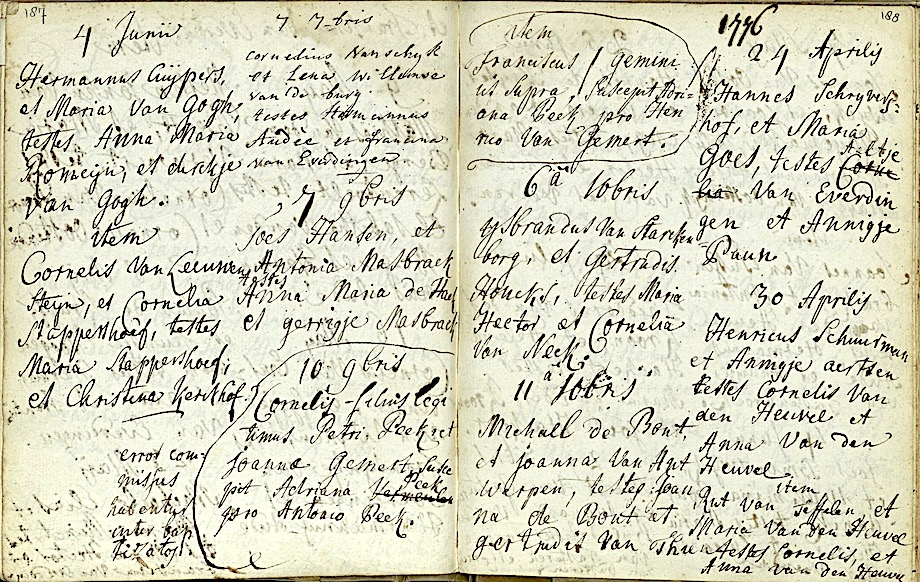 187
4 Junii
Hermannus Cuijpers,
et Maria Van Gogh,
testes Anna Maria
Romeijn, et dirckje
Van Gogh.
item
Cornelis Van Leeuwen
Steijn, et Cornelia
Stappershoef, testes
Maria Stappershoef,
et Christina Kerkhof.
error com-
missus
habentur
inter bap
tizatos
7 7-bris
Cornelius Van Schyk
et Lena Willemse
van de burg.
testes Hermannus
Andèe et francina
van Everdingen
7 9bris
Joes Hansen, et
Antonia Masbraek
testes
Anna Maria de Haas
et gerrigje Masbraek
10 9bris
Cornelis filius legi
timus Petri Peek et
Joannæ Gemert, Susce
pit Adriana Peek
pro Antonio Peek.
188
item
Franciscus gemini
ut Supra, Suscepit Adri-
ana Peek pro Hen
rico Van Gemert.
6a 10bris
ysbrandus Van Starcken
borg, et Gertrudis
Houcks, testes Maria
Hector et Cornelia
Van Neck.
11a 10bris
Michall de Bont,
et Joanna Van Ant
werpen, testes Joan
na de Bont et
gertrudis Van
1776
24 Aprilis
Hannes Schryvers-
hof, et Maria
Goes, testes Aeltje
Van Everdin
gen et Annigje
Paun
30 Aprilis
Henricus Schuurman
et Annigje aertsen
testes Cornelis Van
den Heuvel et
Anna Van den
Heuvel
item
Rut van Seffelen, et
Maria Van den Heuvel
testes Cornelis, et
Anna van den Heuvel